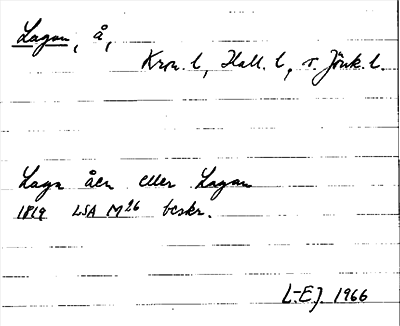 Lagan, å,
Kron. l, Hall. l, o. Jönk. l.
Laga åen eller Lagan
1819 LSA M26 beskr.
L-E.J. 1966